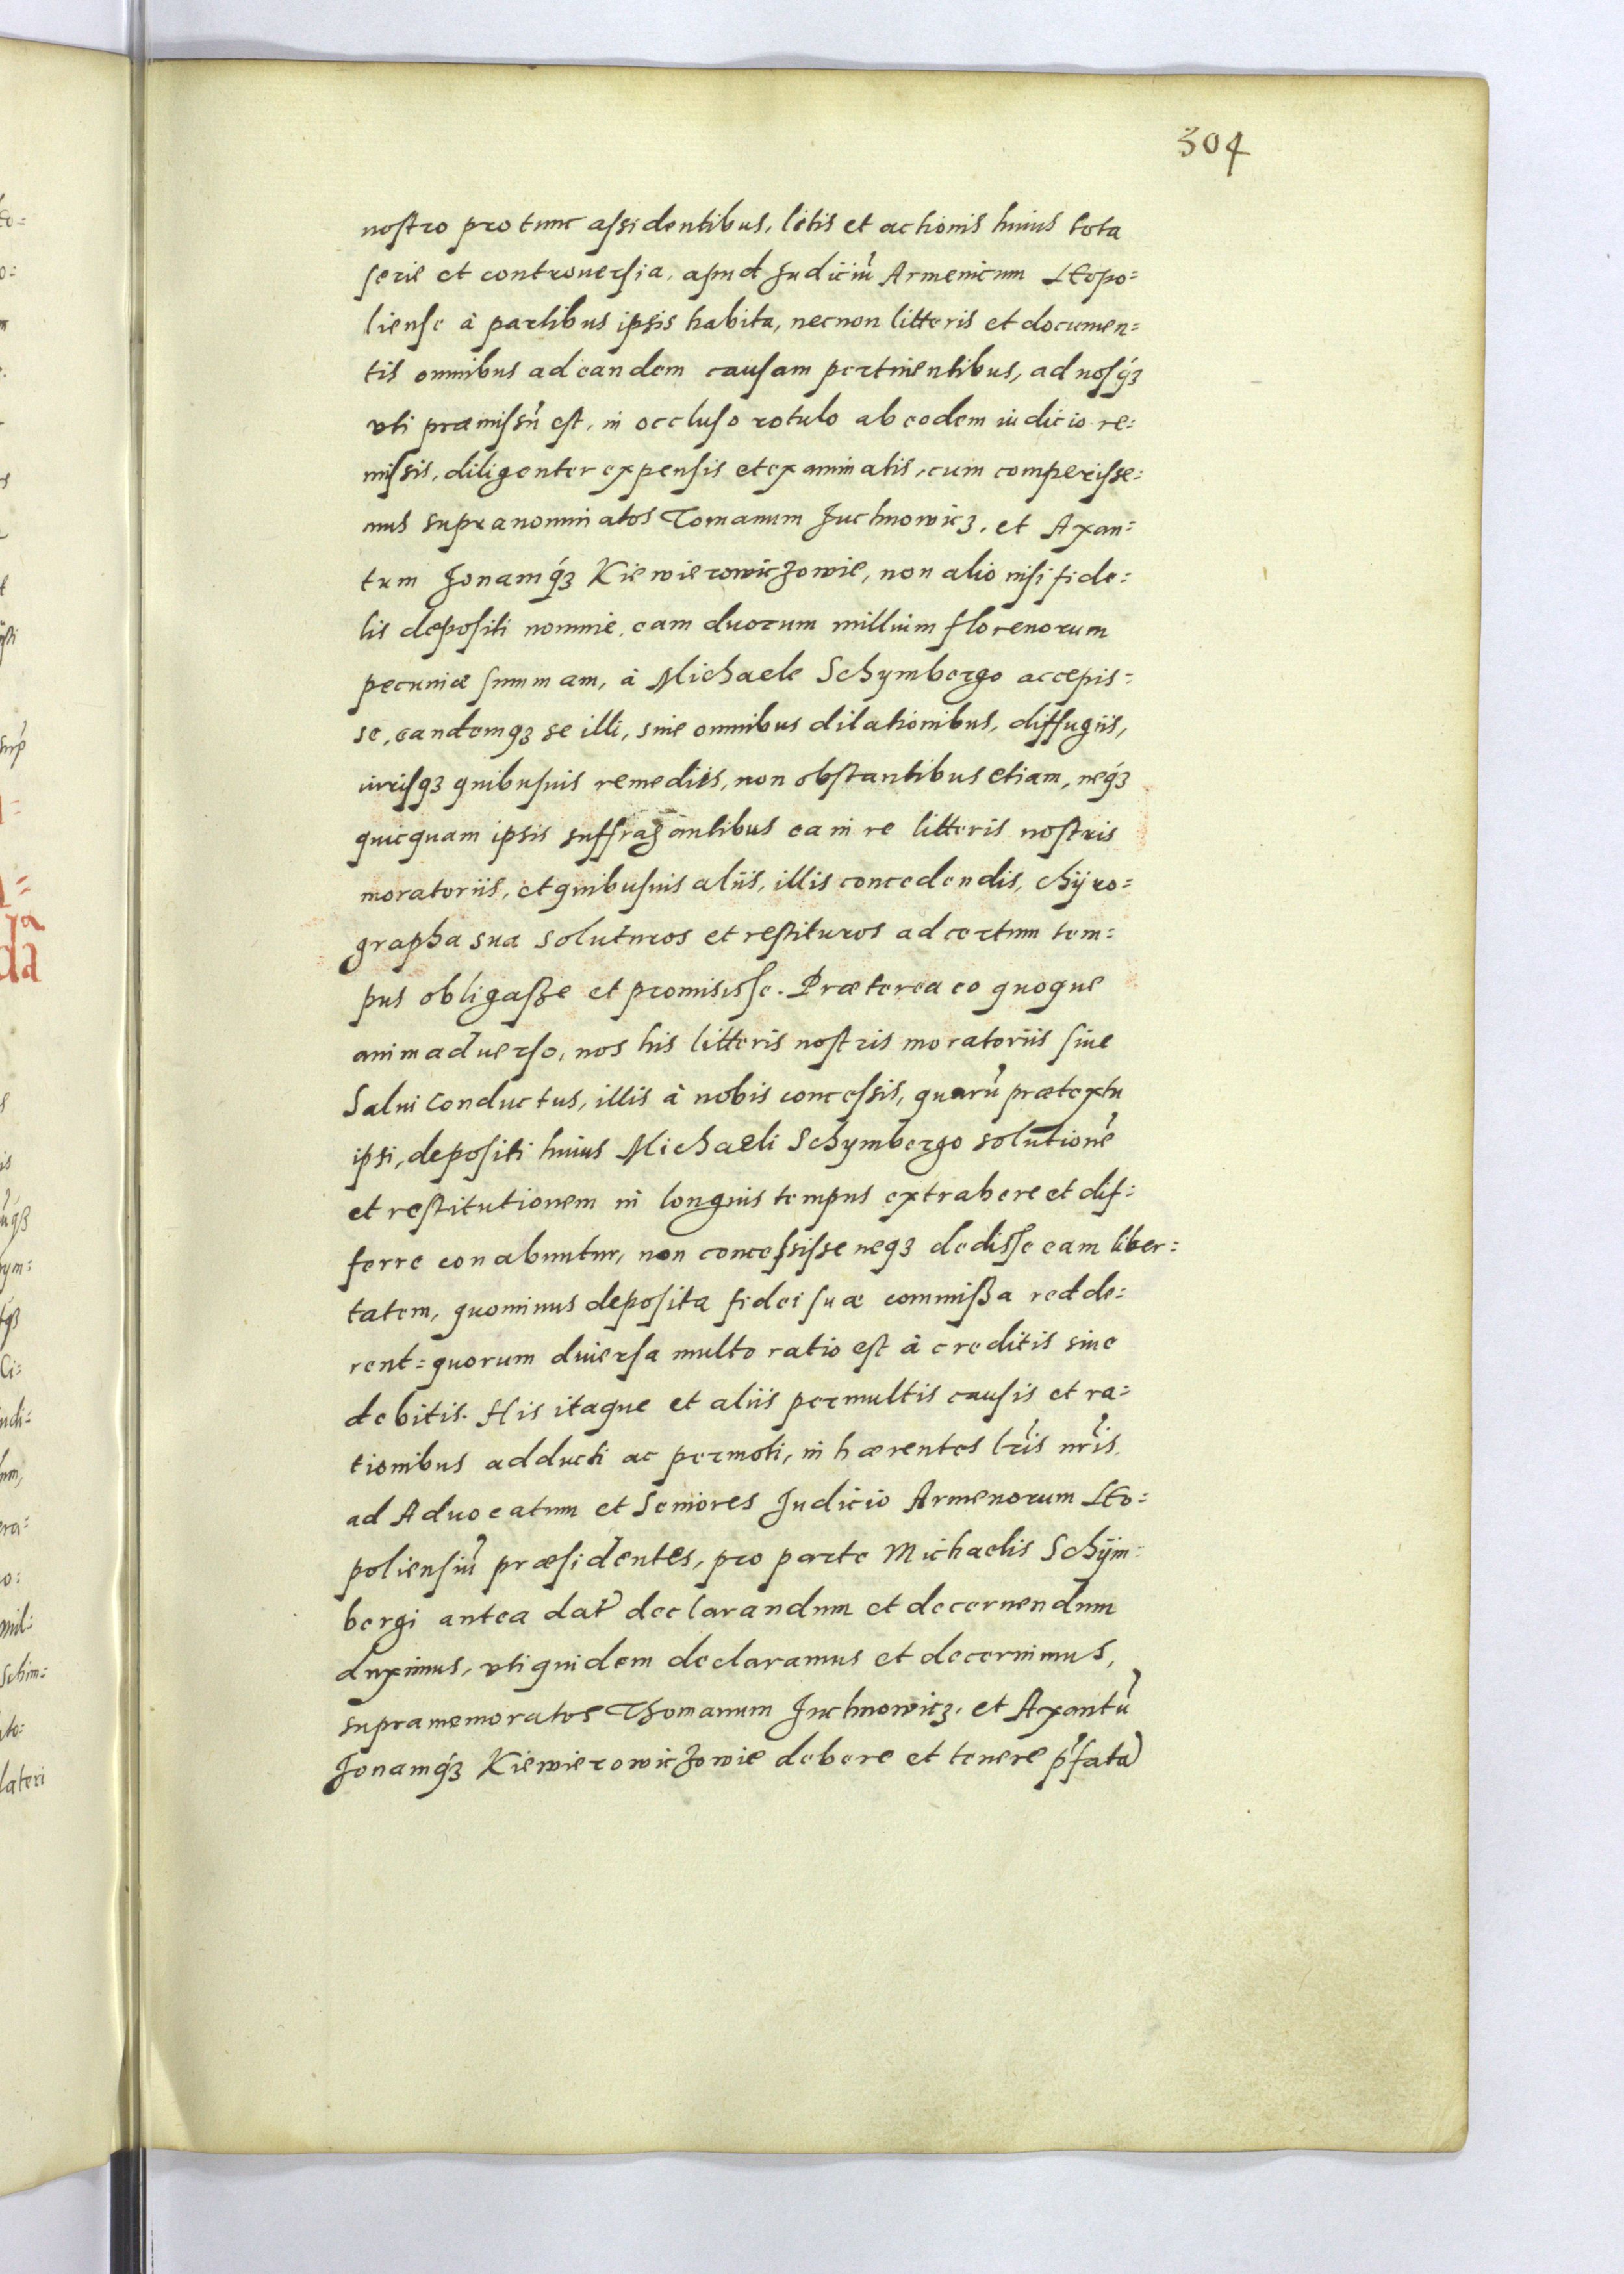 304
nostro pro tunc assidentibus, litis et actionis huius tota
serie et controuersia, apud Judiciũ Armenicum Leopo=
liense à partibus ipsis habita, necnon litteris et documen=
tis omnibus ad eandem causam pertinentibus, ad nosq́ꝫ
vti præmissũ est, in occluso rotulo ab eodem iudicio re=
missis, diligenter expensis et examinatis, cum comperisse=
mus supranominatos Tomanum Juchnowicz, et Axan=
tum Jonamq́ꝫ Kiewierowiczowie, non alio nisi fide=
lis depositi nomine, eam duorum millium florenorum
pecuniæ summam, à Michaele Schymbergo accepis=
se, eandemqꝫ se illi, sine omnibus dilationibus, diffugiis,
iurisqꝫ quibusuis remediis, non obstantibus etiam, neq́ꝫ
quicquam ipsis suffragantibus ea in re litteris nostris
moratoriis, et quibusuis aliis, illis concedendis, chÿro=
grapha sua soluturos et restituros ad certum tem=
pus obligaße et promisisse. Præterea eo quoque
animaduerso, nos his litteris nostris moratoriis siue
Salui Conductus, illis à nobis concessis, quarũ prætextu
ipsi, depositi huius Michaeli Schymbergo solutionẽ
et restitutionem in longius tempus extrahere et dif=
ferre conabuntur, non concessisse neqꝫ dedisse eam liber=
tatem, quominus deposita fidei suæ commißa redde=
rent= quorum diuersa multo ratio est à creditis siue
debitis. His itaque et aliis permultis causis et ra=
tionibus adducti ac permoti, inhærentes lr̃is nr̃is,
ad Aduocatum et Seniores Judicio Armenorum Leo=
poliensiũ præsidentes, pro parte Michaelis Schÿm=
bergi antea dat̃ declarandum et decernendum
duximus, vti quidem declaramus et decernimus,
supramemoratos Thomanum Juchnowicz, et Axantũ
Jonamq́ꝫ Kiewierowiczowie debere et tenere p̃fata